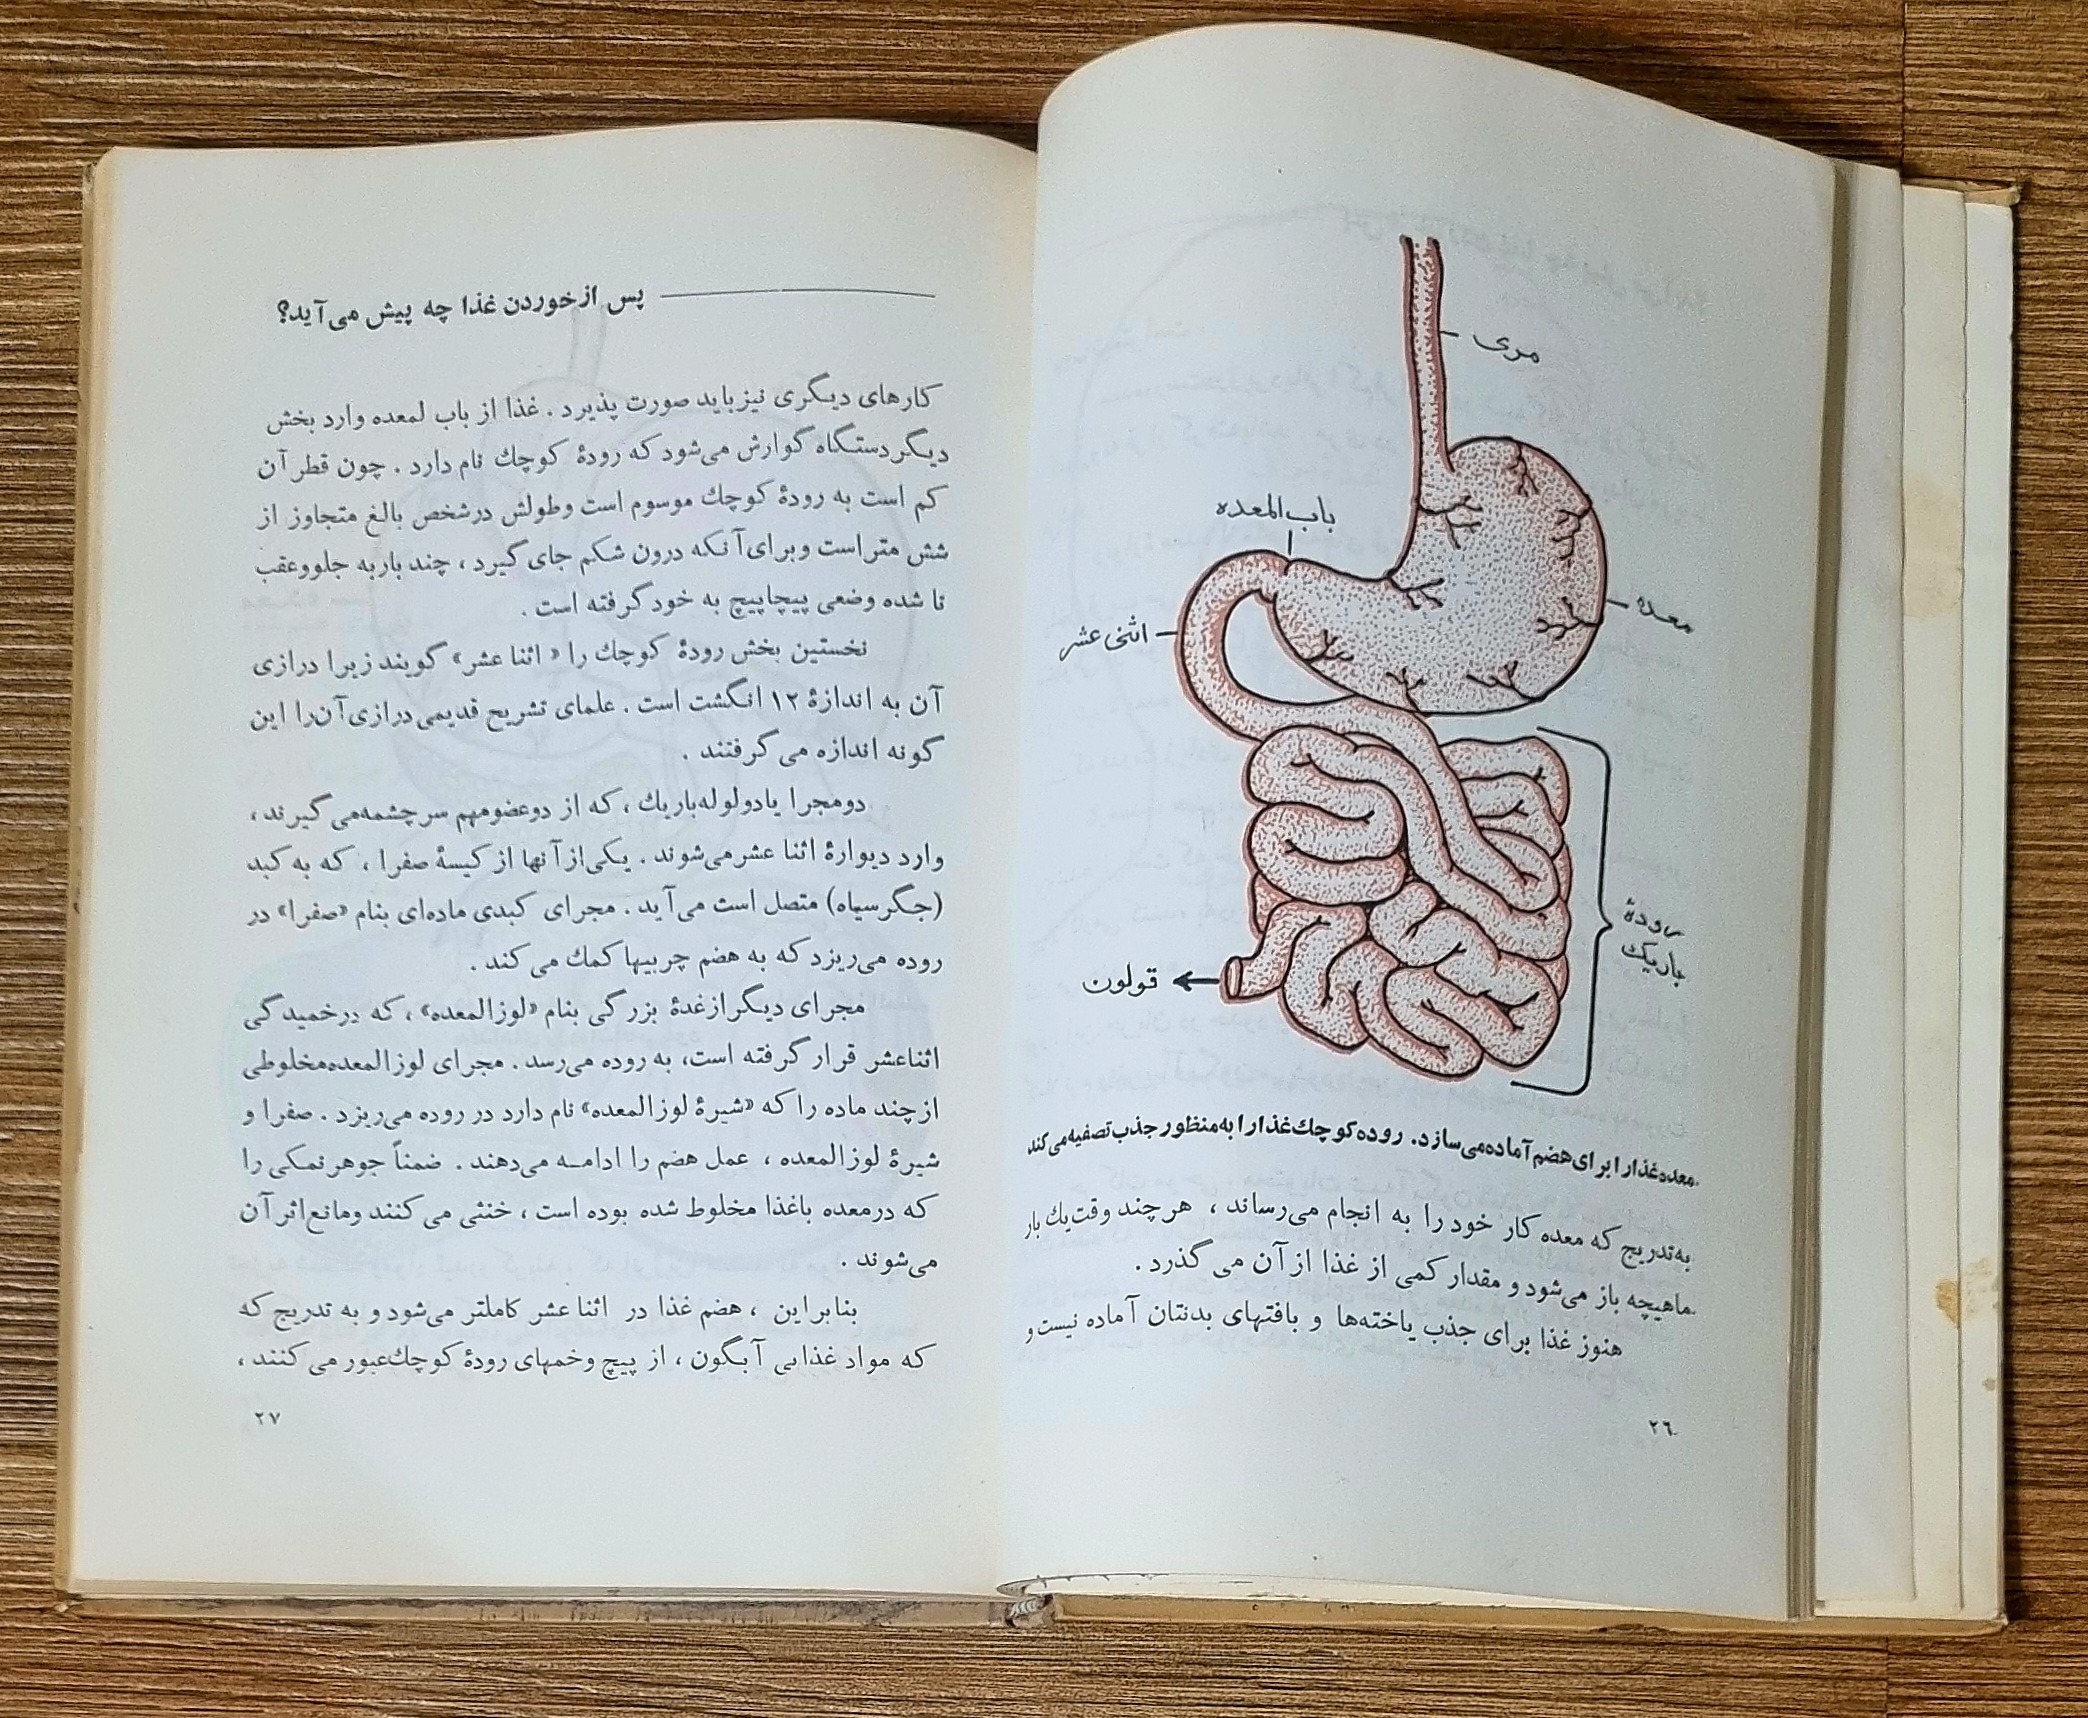 مری
باب‌المعده
معده
اثنی عشر
رودهٔ
باریک
قولون
معده غذا را برای هضم آماده می‌سازد. روده کوچک غذا را به منظور جذب تصفیه می‌کند
به‌تدریج که معده کار خود را به انجام می‌رساند ، هر چند وقت یک بار
ماهیچه باز می‌شود و مقدار کمی از غذا از آن می گذرد .
هنوز غذا برای جذب یاخته‌ها و بافتهای بدنتان آماده نیست و
۲۶
پس از خوردن غذا چه پیش می‌آید؟
کارهای دیگری نیز باید صورت پذیرد . غذا از باب لمعده وارد بخش
دیگر دستگاه گوارش می‌شود که رودهٔ کوچک نام دارد . چون قطر آن
کم است به رودهٔ کوچک موسوم است وطولش درشخص بالغ متجاوز از
شش متر است وبرای آنکه درون شکم جای گیرد ، چند بار به جلووعقب
تا شده وضعی پیچاپیچ به خود گرفته است .
نخستین بخش رودهٔ کوچک را « اثنا عشر» گویند زیرا درازی
آن به اندازهٔ ۱۲ انگشت است . علمای تشریح قدیمی درازی آن‌را این
گونه اندازه می گرفتند .
دومجرا یادولوله‌باریک ، که از دوعضومهم سرچشمه‌می گیرند ،
وارد دیوارهٔ اثنا عشرمی‌شوند . یکی‌از آنها از کیسهٔ صفرا ، که به کبد
(جگرسیاه) متصل است می‌آید . مجرای کبدی ماده‌ای بنام «صفرا» در
روده می‌ریزد که به هضم چربیها کمک می کند .
مجرای دیگرازغدهٔ بزرگی بنام «لوزالمعده» ، که درخمیدگی
اثناعشر قرار گرفته است، به روده می‌رسد . مجرای لوزالمعده‌مخلوطی
ازچند ماده را که «شیرهٔ لوزالمعده» نام دارد در روده می‌ریزد . صفرا و
شیرهٔ لوزالمعده ، عمل هضم را ادامه می‌دهند . ضمناً جوهرنمکی را
که درمعده باغذا مخلوط شده بوده است ، خنثی می کنند ومانع‌اثر آن
می‌شوند .
بنابراین ، هضم غذا در اثنا عشر کاملتر می‌شود و به تدریج که
که مواد غذایی آبگون ، از پیچ وخمهای رودهٔ کوچک‌عبور می کنند ،
۲۷